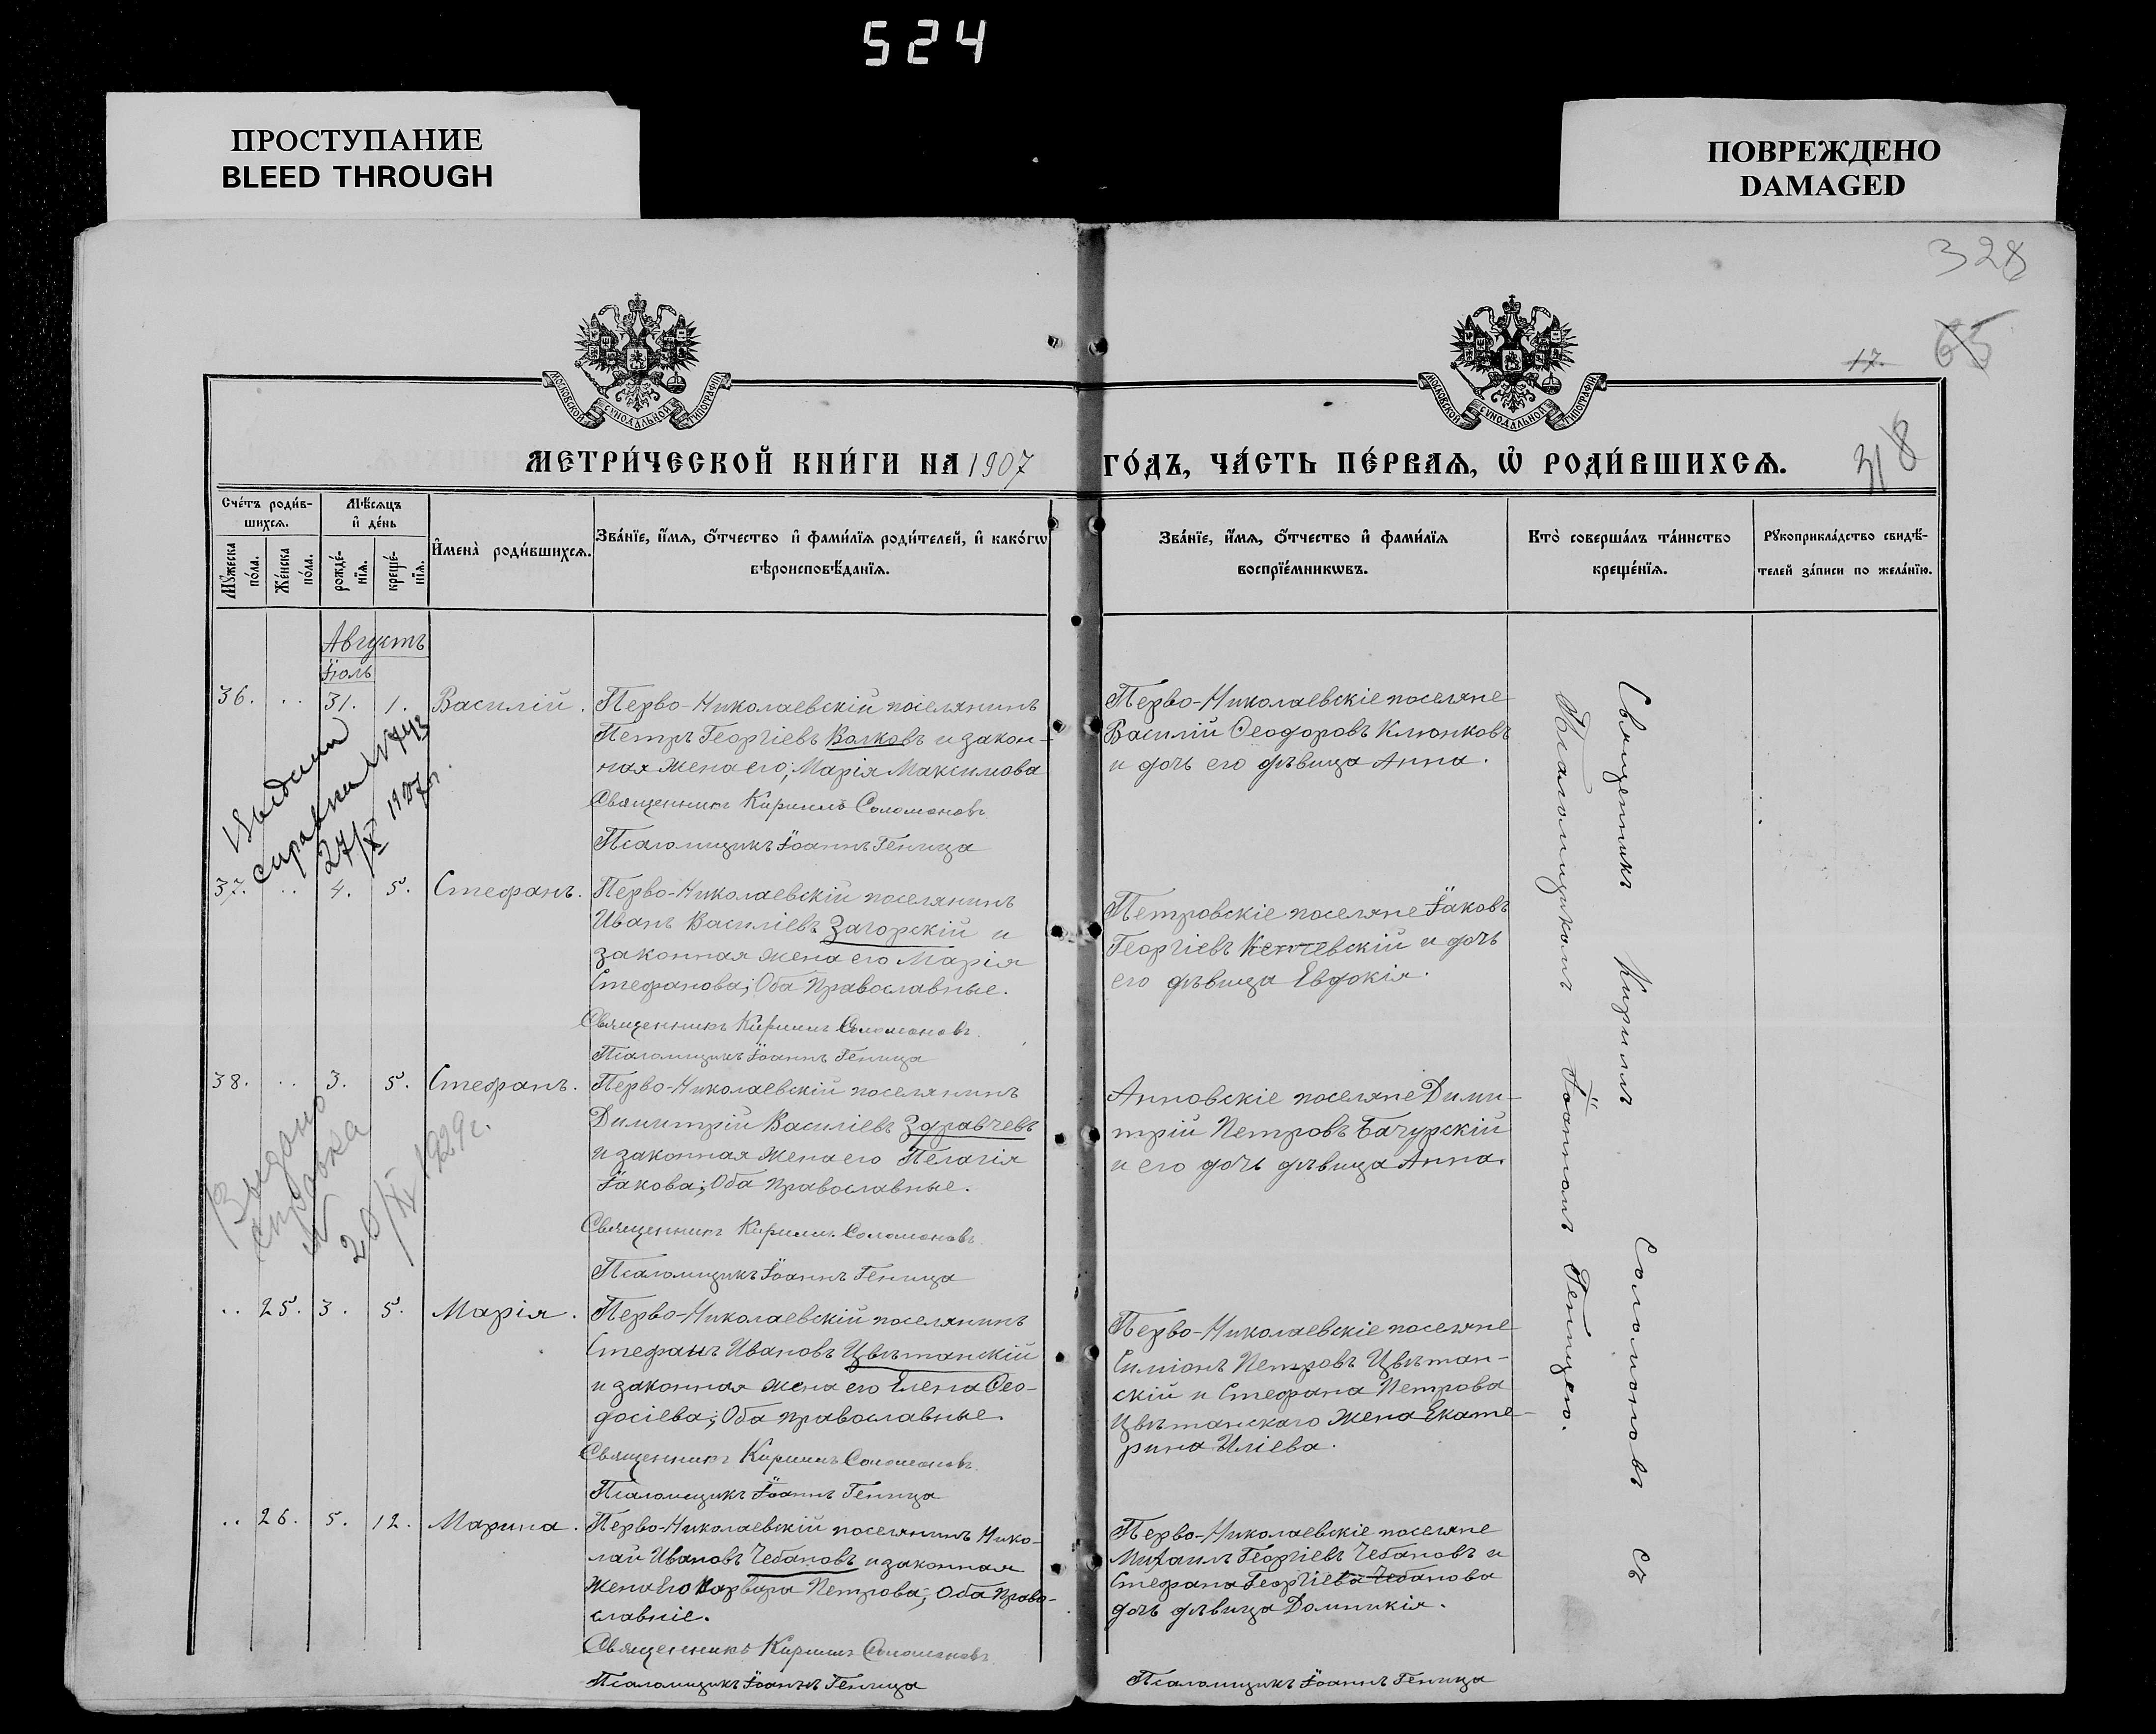 524
ПРОСТУПАНИЕ
BLEED THROUGH
ПОВРЕЖДЕНО
DAMAGED
328
17. 65
318
МОСКОВСКОЙ СѴНОДАЛЬНОЙ ТИПОГРАФІИ
МОСКОВСКОЙ СѴНОДАЛЬНОЙ ТИПОГРАФІИ
МЕТРИ́ЧЕСКОЙ КНИ́ГИ НА 1907 ГО́ДЪ, ЧА́СТЬ ПЕ́РВАЯ, Ѡ РОДИ́ВШИХСЯ.
Сче́тъ роди́в-
шихся.
Мꙋ́жеска по́ла.
Же́нска по́ла.
Мѣ́сяцъ
и де́нь
рожде́-
нїя.
креще́-
нїя.
Имена̀ роди́вшихся.
Зва́нїе, и́мя, ѻ́тчество и фами́лїя роди́телей, и како́гѡ
вѣроисповѣ́данїя.
Зва́нїе, и́мя, ѻ́тчество и фами́лїя
воспрїе́мникѡвъ.
Кто̀ соверша́лъ та́инство
креще́нїя.
Рꙋкоприкла́дство свидѣ́-
телей за́писи по жела́нїю.
Августъ
Іюль
36. .. 31. 1. Василій.
Перво-Николаевскій поселянинъ
Петръ Георгіевъ Волковъ и закон-
ная жена его; Марія Максимова
Священникъ Кириллъ Соломоновъ
Псаломщикъ Іоаннъ Геница
Перво-Николаевскіе поселяне
Василій Ѳеодоровъ Клюнковъ
и дочь его дѣвица Анна.
Выдана
справка №
27/X 1907г.
37. .. 4. 5. Стефанъ.
Перво-Николаевскій поселянинъ
Иванъ Василіевъ Загорскій и
законная жена его Марія
Стефанова; Оба православные.
Священникъ Кириллъ Соломоновъ.
Псаломщикъ Іоаннъ Геница
Петровскіе поселяне Іаковъ
Георгіевъ Кенчевскій и дочь
его дѣвица Евдокія.
38. .. 3. 5. Стефанъ.
Перво-Николаевскій поселянинъ
Димитрій Василіевъ Здравчевъ
и законная жена его Пелагія
Іакова; Оба православные.
Священникъ Кириллъ Соломоновъ.
Псаломщикъ Іоаннъ Геница
Анновскіе поселяне Дими-
трій Петровъ Бачурскій
и его дочь дѣвица Анна.
Выдана
справка
№
20/XI 1929г.
.. 25. 3. 5. Марія.
Перво-Николаевскій поселянинъ
Стефанъ Ивановъ Цвѣтанскій
и законная жена его Елена Ѳео-
досіева; Оба православные.
Священникъ Кириллъ Соломоновъ.
Псаломщикъ Іоаннъ Геница
Перво-Николаевскіе поселяне
Симіонъ Петровъ Цвѣтан-
скій и Стефана Петрова
Цвѣтанскаго жена Екате-
рина Иліева.
.. 26. 5. 12. Марина.
Перво-Николаевскій поселянинъ Нико-
лай Ивановъ Чебановъ и законная
жена его Варвара Петрова; Оба право-
славніе.
Священникъ Кириллъ Соломоновъ
Псаломщикъ Іоаннъ Геница
Перво-Николаевскіе поселяне
Михаилъ Георгіевъ Чебановъ и
Стефана Георгіева Чебанова
дочь дѣвица Домникія.
Псаломщикъ Іоаннъ Геница
Священникъ Кириллъ Соломоновъ съ
Псаломщикомъ Іоанномъ Геницею.